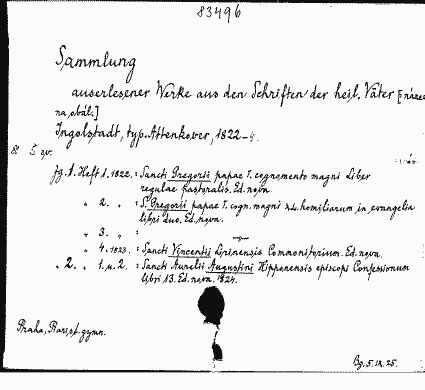 83496
Sammlung
auserlesener Werke aus den Schriften der heil. Väter [názec
na obál.]
Ingolstadt, typ. Attenkover, 1822-4.
8° 5 sv.
Jg. 1. Heft 1. 1822. : Sancti Gregorii papae I. cognomento magni Liber
regulae pastoralis. Ed. nova.
" 2. " : S. Gregorii papae I. cogn. magni XL. homiliarum in evangelia
libri duo. Ed. nova.
" 3. " : —
" 4. 1823. : Sancti Vincentii Lirinensis Commonitorium. Ed. nova.
" 2. " 1. u. 2. : Sancti Aurelii Augustini Hipponensis episcopi Confessionum
libri 13. Ed. nova. 1824.
Praha, gymn.
Bg. 5.IX.25.